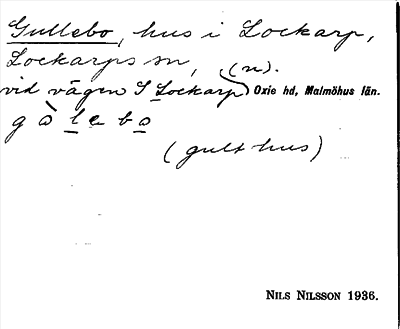 Gullebo, hus i Lockarp,
Lockarps sn,
(n).
vid vägen S Lockarp) Oxie hd, Malmöhus län.
g à l e b o
(gult hus)
NILS NILSSON 1936.